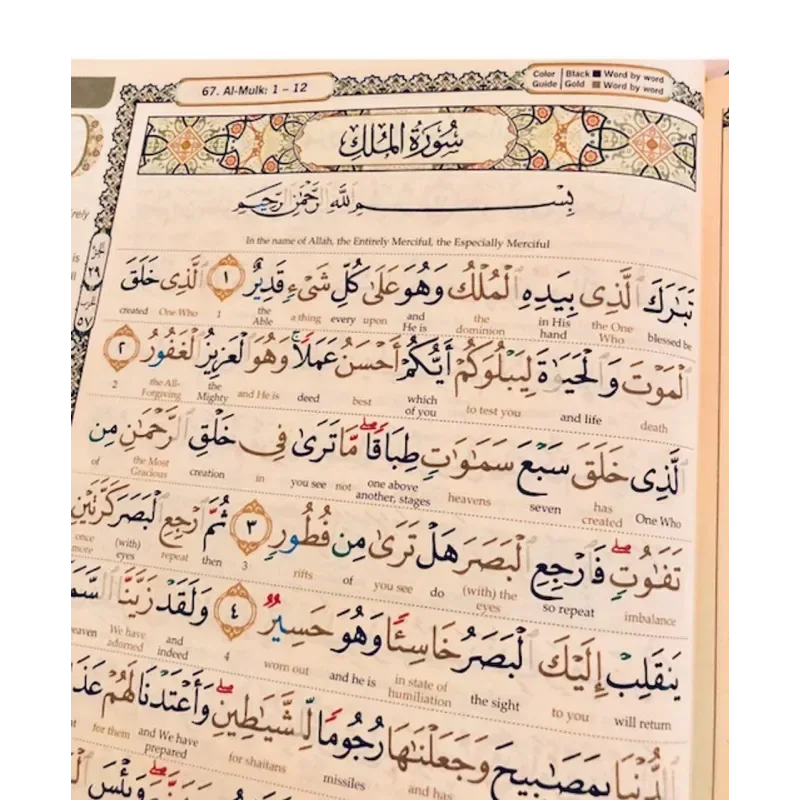 67. Al-Mulk: 1 – 12
Color Guide Black Word by word
Gold Word by word
سُورَةُ المُلْكِ
بِسْمِ اللَّهِ الرَّحْمَٰنِ الرَّحِيمِ
In the name of Allāh, the Entirely Merciful, the Especially Merciful
الجزء ٢٩
الحزب ٥٧
تَبَٰرَكَ ٱلَّذِى بِيَدِهِ ٱلْمُلْكُ وَهُوَ عَلَىٰ كُلِّ شَىْءٍ قَدِيرٌ ١ ٱلَّذِى خَلَقَ
blessed be the One Who in His hand the dominion and He is upon every a thing the Able 1 One Who created
ٱلْمَوْتَ وَٱلْحَيَوٰةَ لِيَبْلُوَكُمْ أَيُّكُمْ أَحْسَنُ عَمَلًا ۚ وَهُوَ ٱلْعَزِيزُ ٱلْغَفُورُ ٢
death and life to test you which of you best deed and He is the Mighty the All-Forgiving 2
ٱلَّذِى خَلَقَ سَبْعَ سَمَٰوَٰتٍ طِبَاقًا ۖ مَّا تَرَىٰ فِى خَلْقِ ٱلرَّحْمَٰنِ مِن
One Who has created seven heavens one above another, stages not you see in creation the Most Gracious of
تَفَٰوُتٍ ۖ فَٱرْجِعِ ٱلْبَصَرَ هَلْ تَرَىٰ مِن فُطُورٍ ٣ ثُمَّ ٱرْجِعِ ٱلْبَصَرَ كَرَّتَيْنِ
imbalance so repeat (with) the eyes do you see of rifts 3 then repeat (with) eyes once more
يَنقَلِبْ إِلَيْكَ ٱلْبَصَرُ خَاسِئًا وَهُوَ حَسِيرٌ ٤ وَلَقَدْ زَيَّنَّا
will return to you the sight in state of humiliation and he is worn out 4 and indeed We have adorned
ٱلدُّنْيَا بِمَصَٰبِيحَ وَجَعَلْنَٰهَا رُجُومًا لِّلشَّيَٰطِينِ ۖ وَأَعْتَدْنَا لَهُمْ
and has missiles for shaitans and We have prepared for them